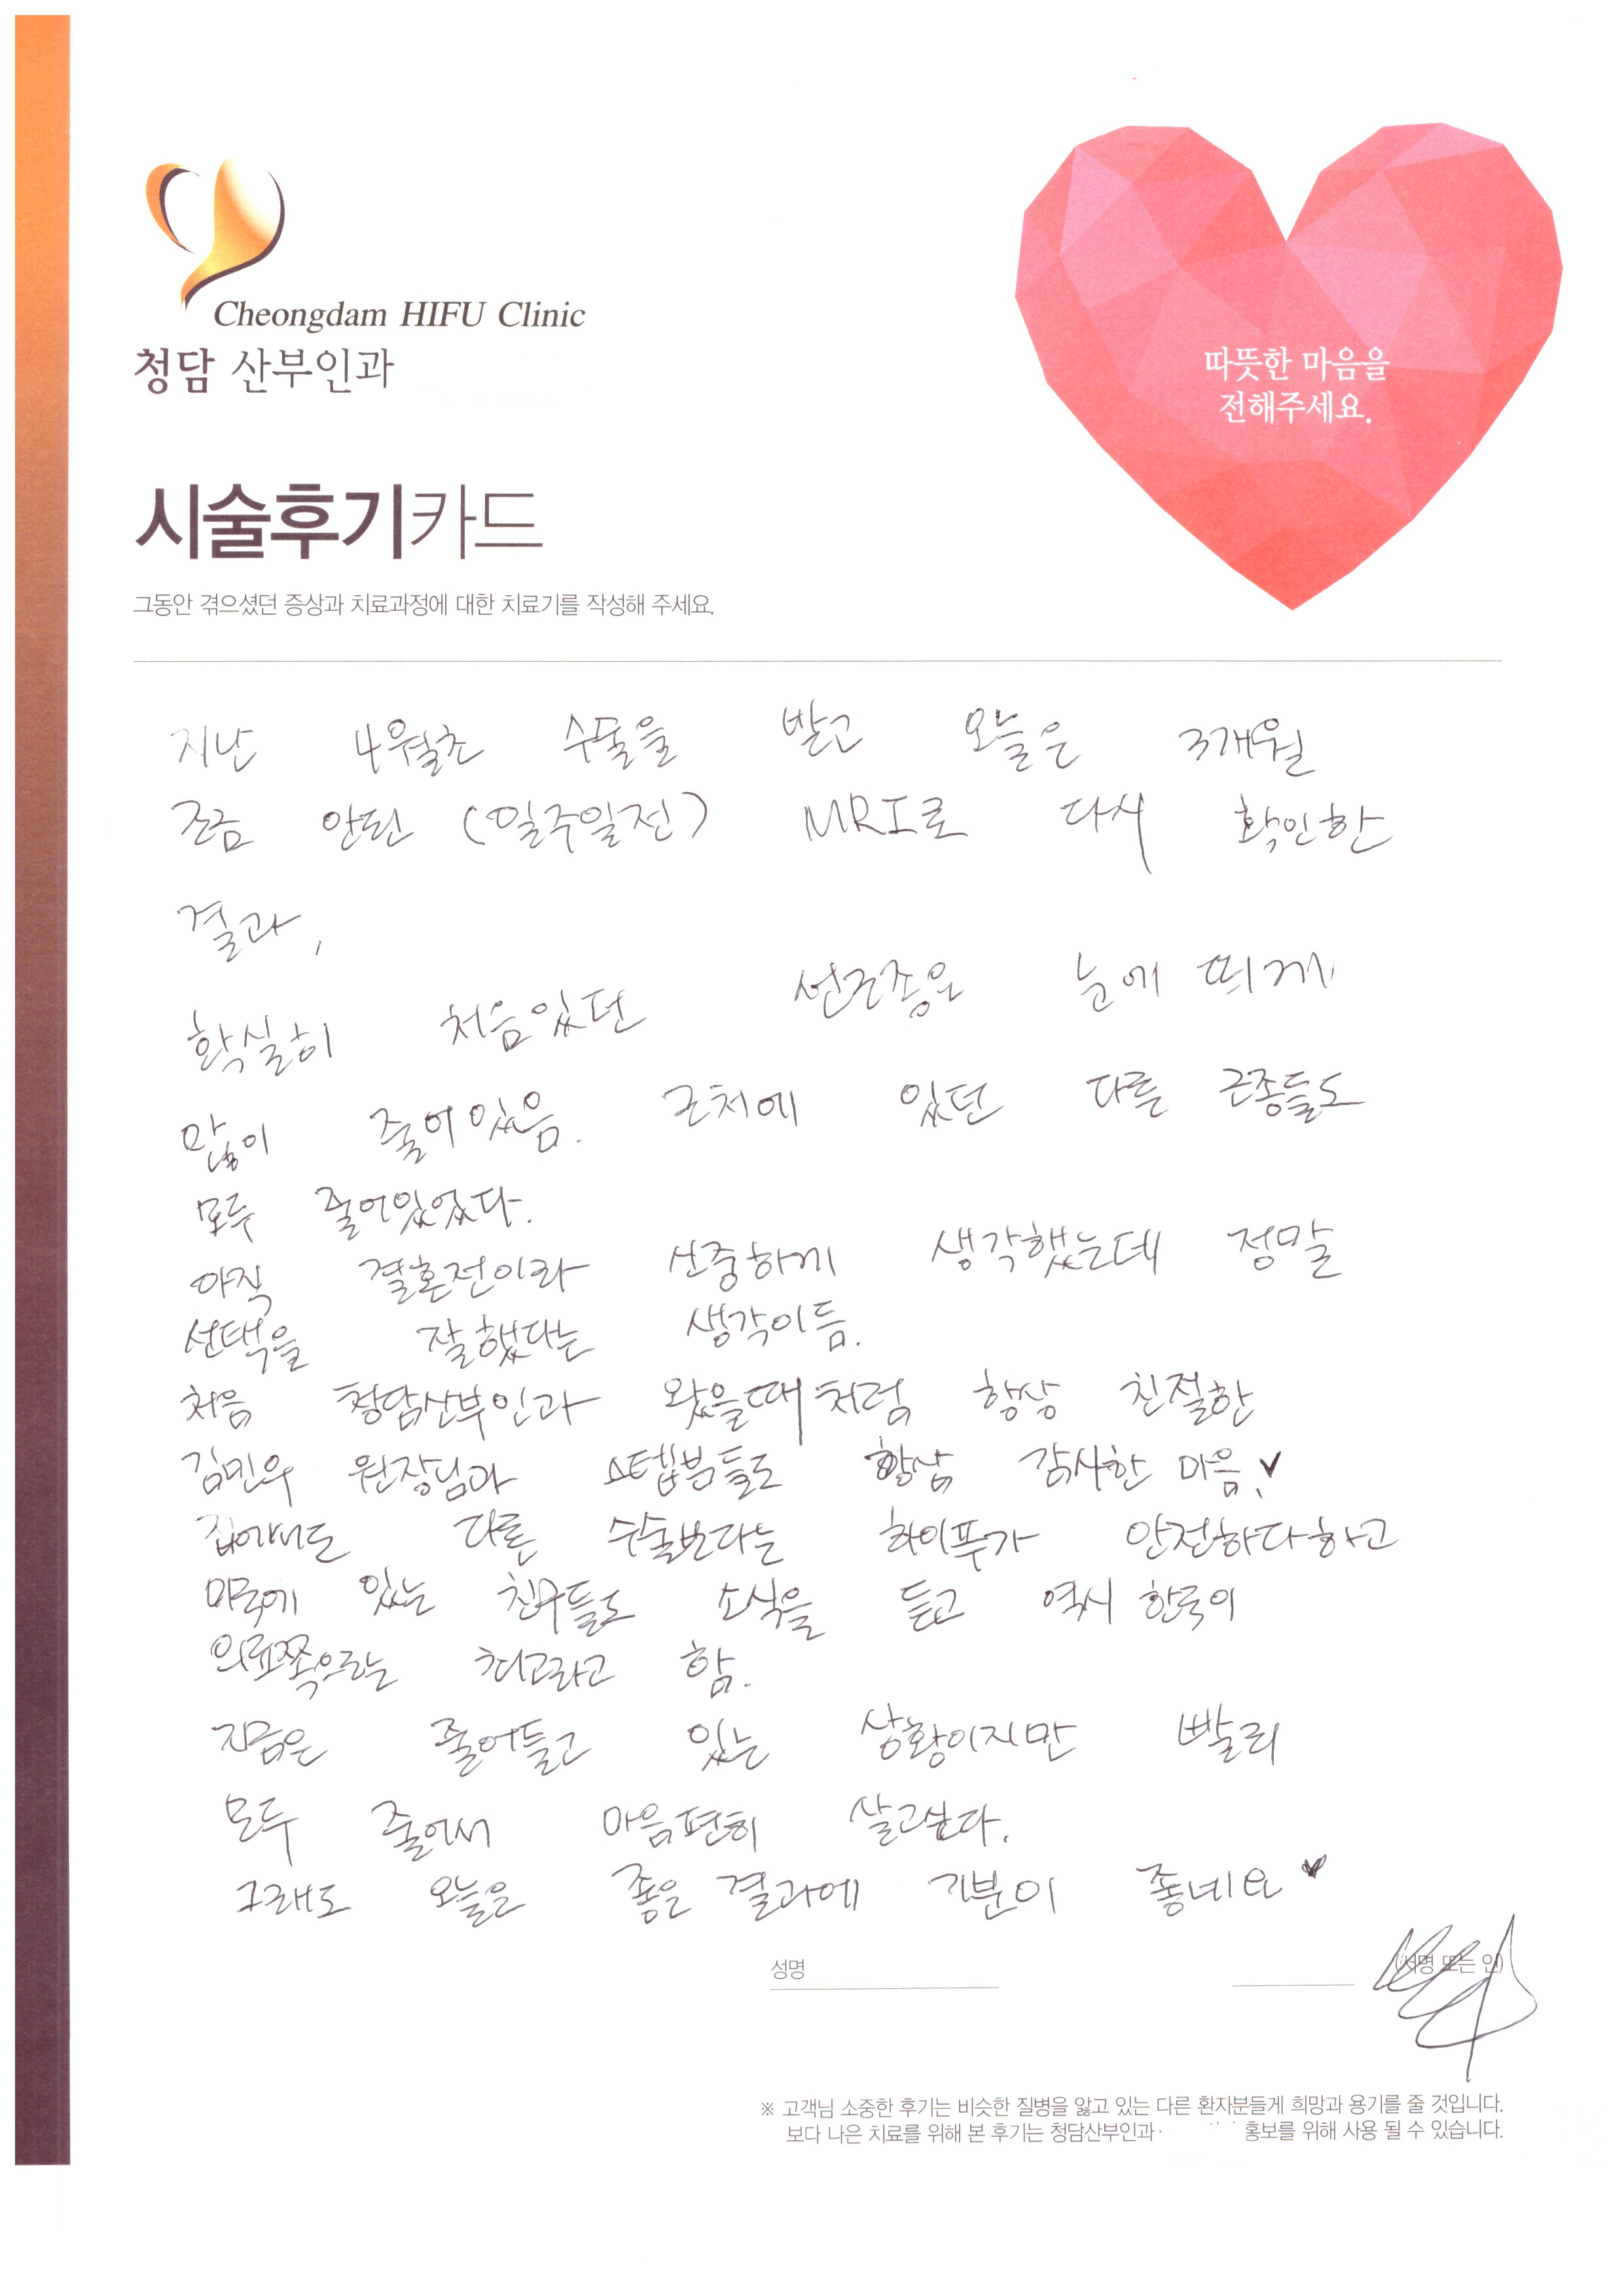 Cheongdam HIFU Clinic
청담 산부인과
따뜻한 마음을
전해주세요.
시술후기카드
그동안 겪으셨던 증상과 치료과정에 대한 치료기를 작성해 주세요.
지난 4월초 수술을 받고 오늘은 3개월
조금 안된 (일주일전) MRI로 다시 확인한
결과,
확실히 처음있던 선근종은 눈에 띄게
많이 줄어있음. 근처에 있던 다른 근종들도
모두 줄어있었다.
아직 결혼전이라 신중하게 생각했는데 정말
선택을 잘했다는 생각이듬.
처음 청담산부인과 왔을때처럼 항상 친절한
김민우 원장님과 스텝분들도 항상 감사한 마음!
집에서도 다른 수술보다는 하이푸가 안전하다하고
미국에 있는 친구들도 소식을 듣고 역시 한국이
의료쪽으로는 최고라고 함.
지금은 줄어들고 있는 상황이지만 빨리
모두 줄어서 마음편히 살고싶다.
그래도 오늘은 좋은 결과에 기분이 좋네요 ♥
성명 (서명 또는 인)
※ 고객님 소중한 후기는 비슷한 질병을 앓고 있는 다른 환자분들게 희망과 용기를 줄 것입니다.
보다 나은 치료를 위해 본 후기는 청담산부인과 홍보를 위해 사용 될 수 있습니다.